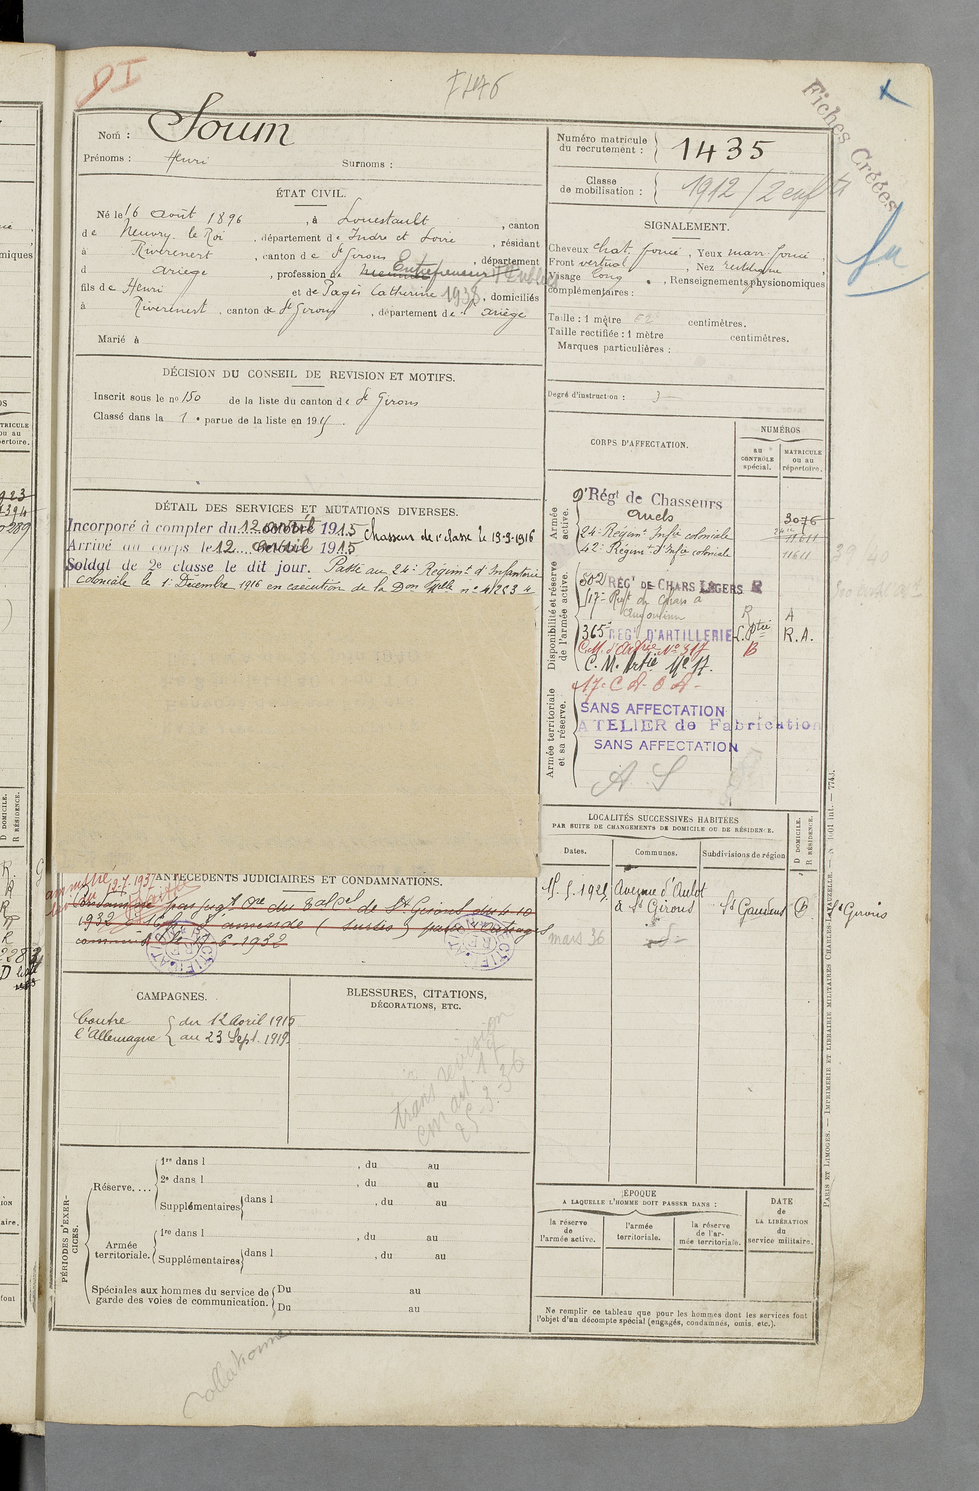 DI
Fiches Créées
Nom : Soum
Prénoms : Henri Surnoms :
Numéro matricule
du recrutement : 1435
Classe
de mobilisation : 1912 /
ÉTAT CIVIL.
Né le 16 août 1896, à Louestault, canton
de Neuvy-le Roi, département de Indre et Loire, résidant
à Riverenert, canton de St Girons, département
d ariège, profession de Entrepreneur
fils de Henri et de Pagès Catherine 1938, domiciliés
à Riverenert, canton de St Girons, département de l' ariège
Marié à
SIGNALEMENT.
Cheveux chat. foncé, Yeux marr. foncé,
Front vertical, Nez rectiligne,
Visage long, Renseignements physionomiques
complémentaires :
Taille : 1 mètre centimètres.
Taille rectifiée : 1 mètre centimètres.
Marques particulières :
Degré d'instruction : 3
DÉCISION DU CONSEIL DE REVISION ET MOTIFS.
Inscrit sous le no 150 de la liste du canton de St Girons
Classé dans la 1e partie de la liste en 191
DÉTAIL DES SERVICES ET MUTATIONS DIVERSES.
Incorporé à compter du 12 avril 1915 Chasseur de 1e classe le 19-9-1916
Arrivé au corps le 12 avril 1915
Soldat de 2e classe le dit jour. Passé au 24e Régiment d'Infanterie
coloniale le 1er Décembre 1916 en exécution de la Don
CORPS D'AFFECTATION.
NUMÉROS
au
CONTRÔLE
spécial.
MATRICULE
ou au
répertoire.
Armée
active.
9e Régt de Chasseurs
Auch 3076
24e Régiment Infie coloniale 11611
42e Régimt d'Infie coloniale 11611
Disponibilité et réserve
de l'armée active.
502 RÉGt DE CHARS LEGERS R
17e Regt de Chars à
Angoulême R A
365e REGt D'ARTILLERIE R.A.
C.M. d'Artie No 317 B
C. M. Artie No 17.
Armée territoriale
et sa réserve.
SANS AFFECTATION
ATELIER de Fabrication
SANS AFFECTATION
A S
LOCALITÉS SUCCESSIVES HABITÉES
PAR SUITE DE CHANGEMENTS DE DOMICILE OU DE RÉSIDENCE.
Dates. Communes. Subdivisions de région
D DOMICILE.
R RÉSIDENCE.
Avenue d'Aulot
à St Girons St Gaudens St Girons
mars 36
ANTÉCÉDENTS JUDICIAIRES ET CONDAMNATIONS.
13-7-1937
Condamné par jugt de St Girons du 4-10
1932 à 16f d'amende (sursis) pour
commis le 6-1932
CAMPAGNES.
Contre
l'Allemagne { du 12 Avril 1915
au 23 Sept. 1919.
BLESSURES, CITATIONS,
DÉCORATIONS, ETC.
25-3-36
PÉRIODES D'EXERCICES.
Réserve....
1re dans l , du au
2e dans l , du au
Supplémentaires dans l , du au
Armée
territoriale.
1re dans l , du au
Supplémentaires dans l , du au
Spéciales aux hommes du service de
garde des voies de communication.
Du au
Du au
ÉPOQUE
A LAQUELLE L'HOMME DOIT PASSER DANS :
la réserve
de
l'armée active.
l'armée
territoriale.
la réserve
de l'ar-
mée territoriale.
DATE
de
LA LIBÉRATION
du
service militaire.
Ne remplir ce tableau que pour les hommes dont les services font
l'objet d'un décompte spécial (engagés, condamnés, omis. etc.).
PARIS ET LIMOGES. — IMPRIMERIE ET LIBRAIRIE MILITAIRES CHARLES-LAVAUZELLE.
Collationné